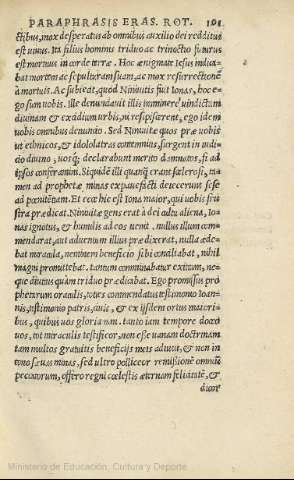 PARAPHRASIS ERAS. ROT. 161
ctibus, mox desperatus ab omnibus auxilio dei redditus
est uiuus. Ita filius hominis triduo ac trinoctio futurus
est mortuus in corde terræ. Hoc ænigmate Iesus indica
bat mortem ac sepulturam suam, ac mox resurrectionē
à mortuis. Ac subiecit, quod Niniuitis fuit Ionas, hoc e
go sum uobis. Ille denunciauit illis imminere uindictam
diuinam & exidium urbis, ni resipiscerent, ego idem
uobis omnibus denuncio. Sed Niniuitæ quos præ uobis
ut ethnicos, & idololatras contemnitis, surgent in iudi
cio diuino, uosq; declarabunt merito damnatos, si ad
ipsos conferamini. Siquidē illi quanq̃ erant scelerosi, ta
men ad prophetæ minas expauefacti deiecerunt sese
ad pœnitentiam. Et ecce hic est Iona maior, qui uobis fru
stra prædicat. Niniuitæ gens erat à dei cultu aliena, Io
nas ignotus, & humilis ad eos uenit, nullus illum com
mendarat, aut aduentum illius prædixerat, nulla æde-
bat miracula, neminem beneficio sibi conciliabat, nihil
magni promittebat, tantum comminabatur exitium, ne-
que diutius quàm triduo prædicabat. Ego promissus pro
phetarum oraculis, toties commendatus testimonio Ioan-
nis, testimonio patris, ciuis, & ex ijsdem ortus maiori-
bus, quibus uos gloriamini, tanto iam tempore doceo
uos, tot miraculis testificor, non esse uanam doctrinam
tam multos gratuitis beneficijs meis adiuui, & non in
tono sæuas minas, sed ultro polliceor remissionē omniū
peccatorum, offero regni cœlestis æternam felicitatē, &
Ministerio de Educación, Cultura y Deporte